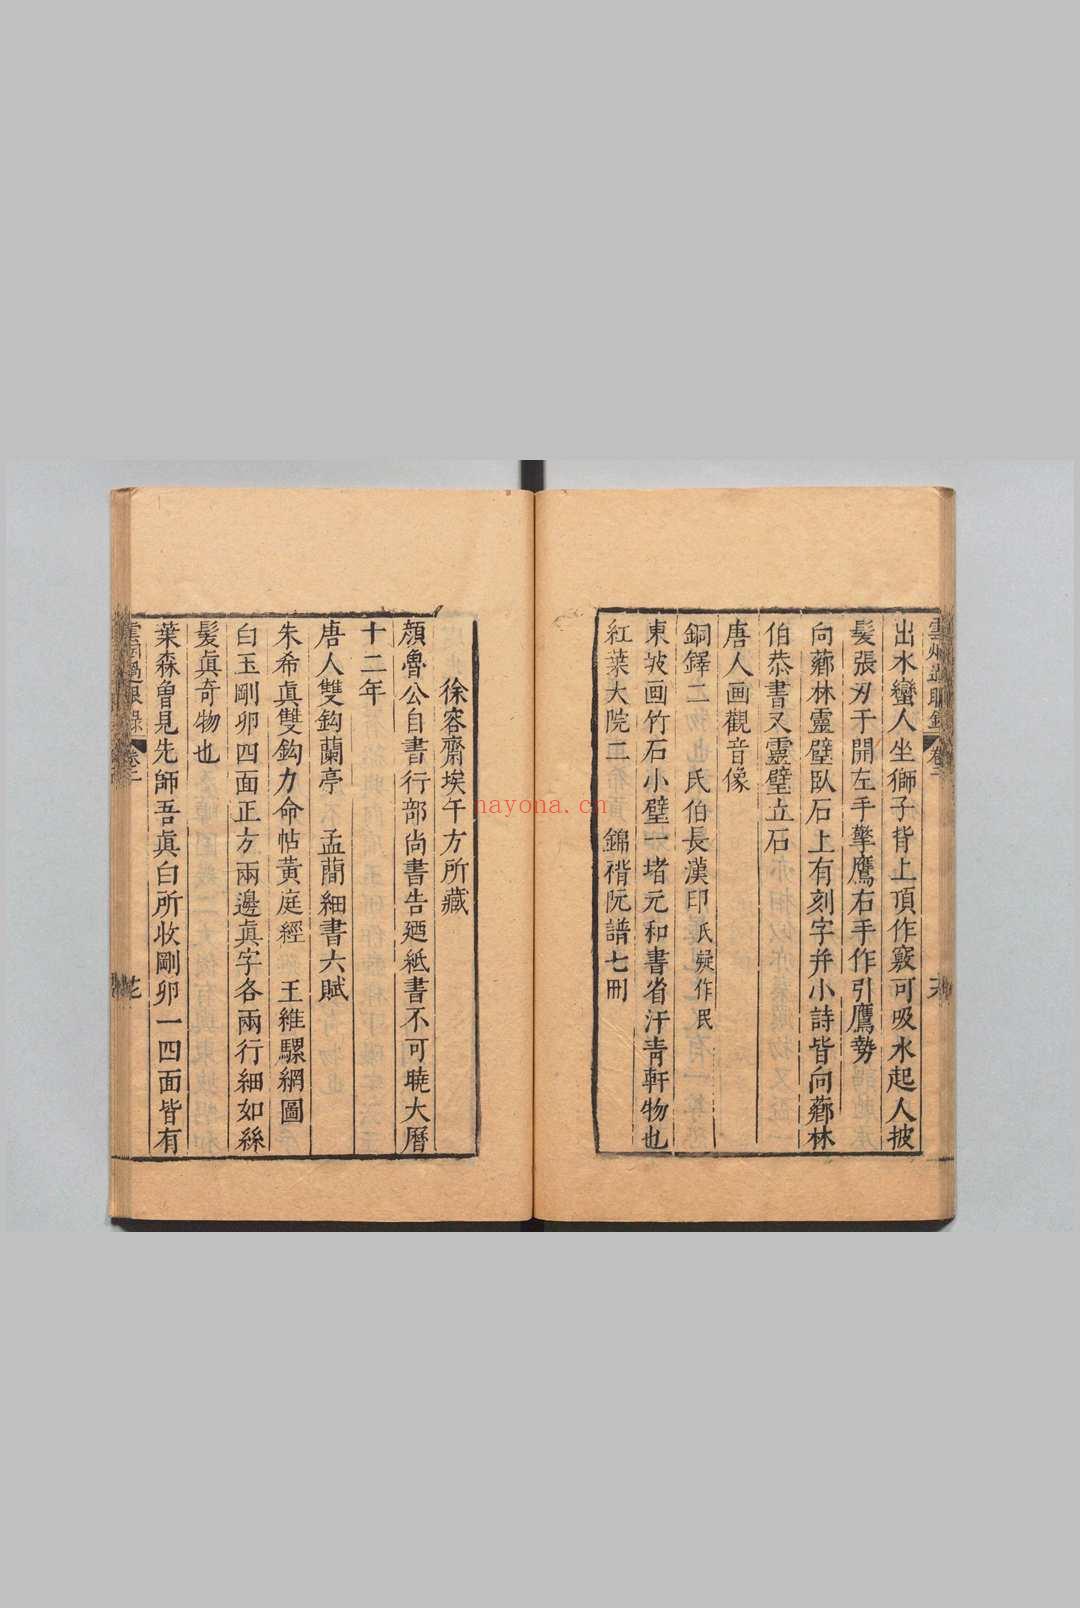 出水蠻人坐獅子背上頂作竅可吸水起人披
髮張刃于開左手擎鷹右手作引鷹勢
向薌林靈璧臥石上有刻字并小詩皆向薌林
伯恭書又靈璧立石
唐人画觀音像
銅鐸二 氏伯長漢印氏疑作民
東坡画竹石小壁一堵元和書省汗青軒物也
紅葉大院二 錦褙阮譜七冊
徐容齋埃午方所藏
顔魯公自書行部尚書告廼紙書不可曉大曆
十二年
唐人雙鈎蘭亭 孟蕳細書六賦
朱希眞雙鈎力命帖黄庭經 王維騾網圖
白玉剛卯四面正方兩邊眞字各兩行細如絲
髮眞奇物也
葉森曾見先師吾眞白所收剛卯一四面皆有
雲烟過眼錄 卷二
nayona.cn